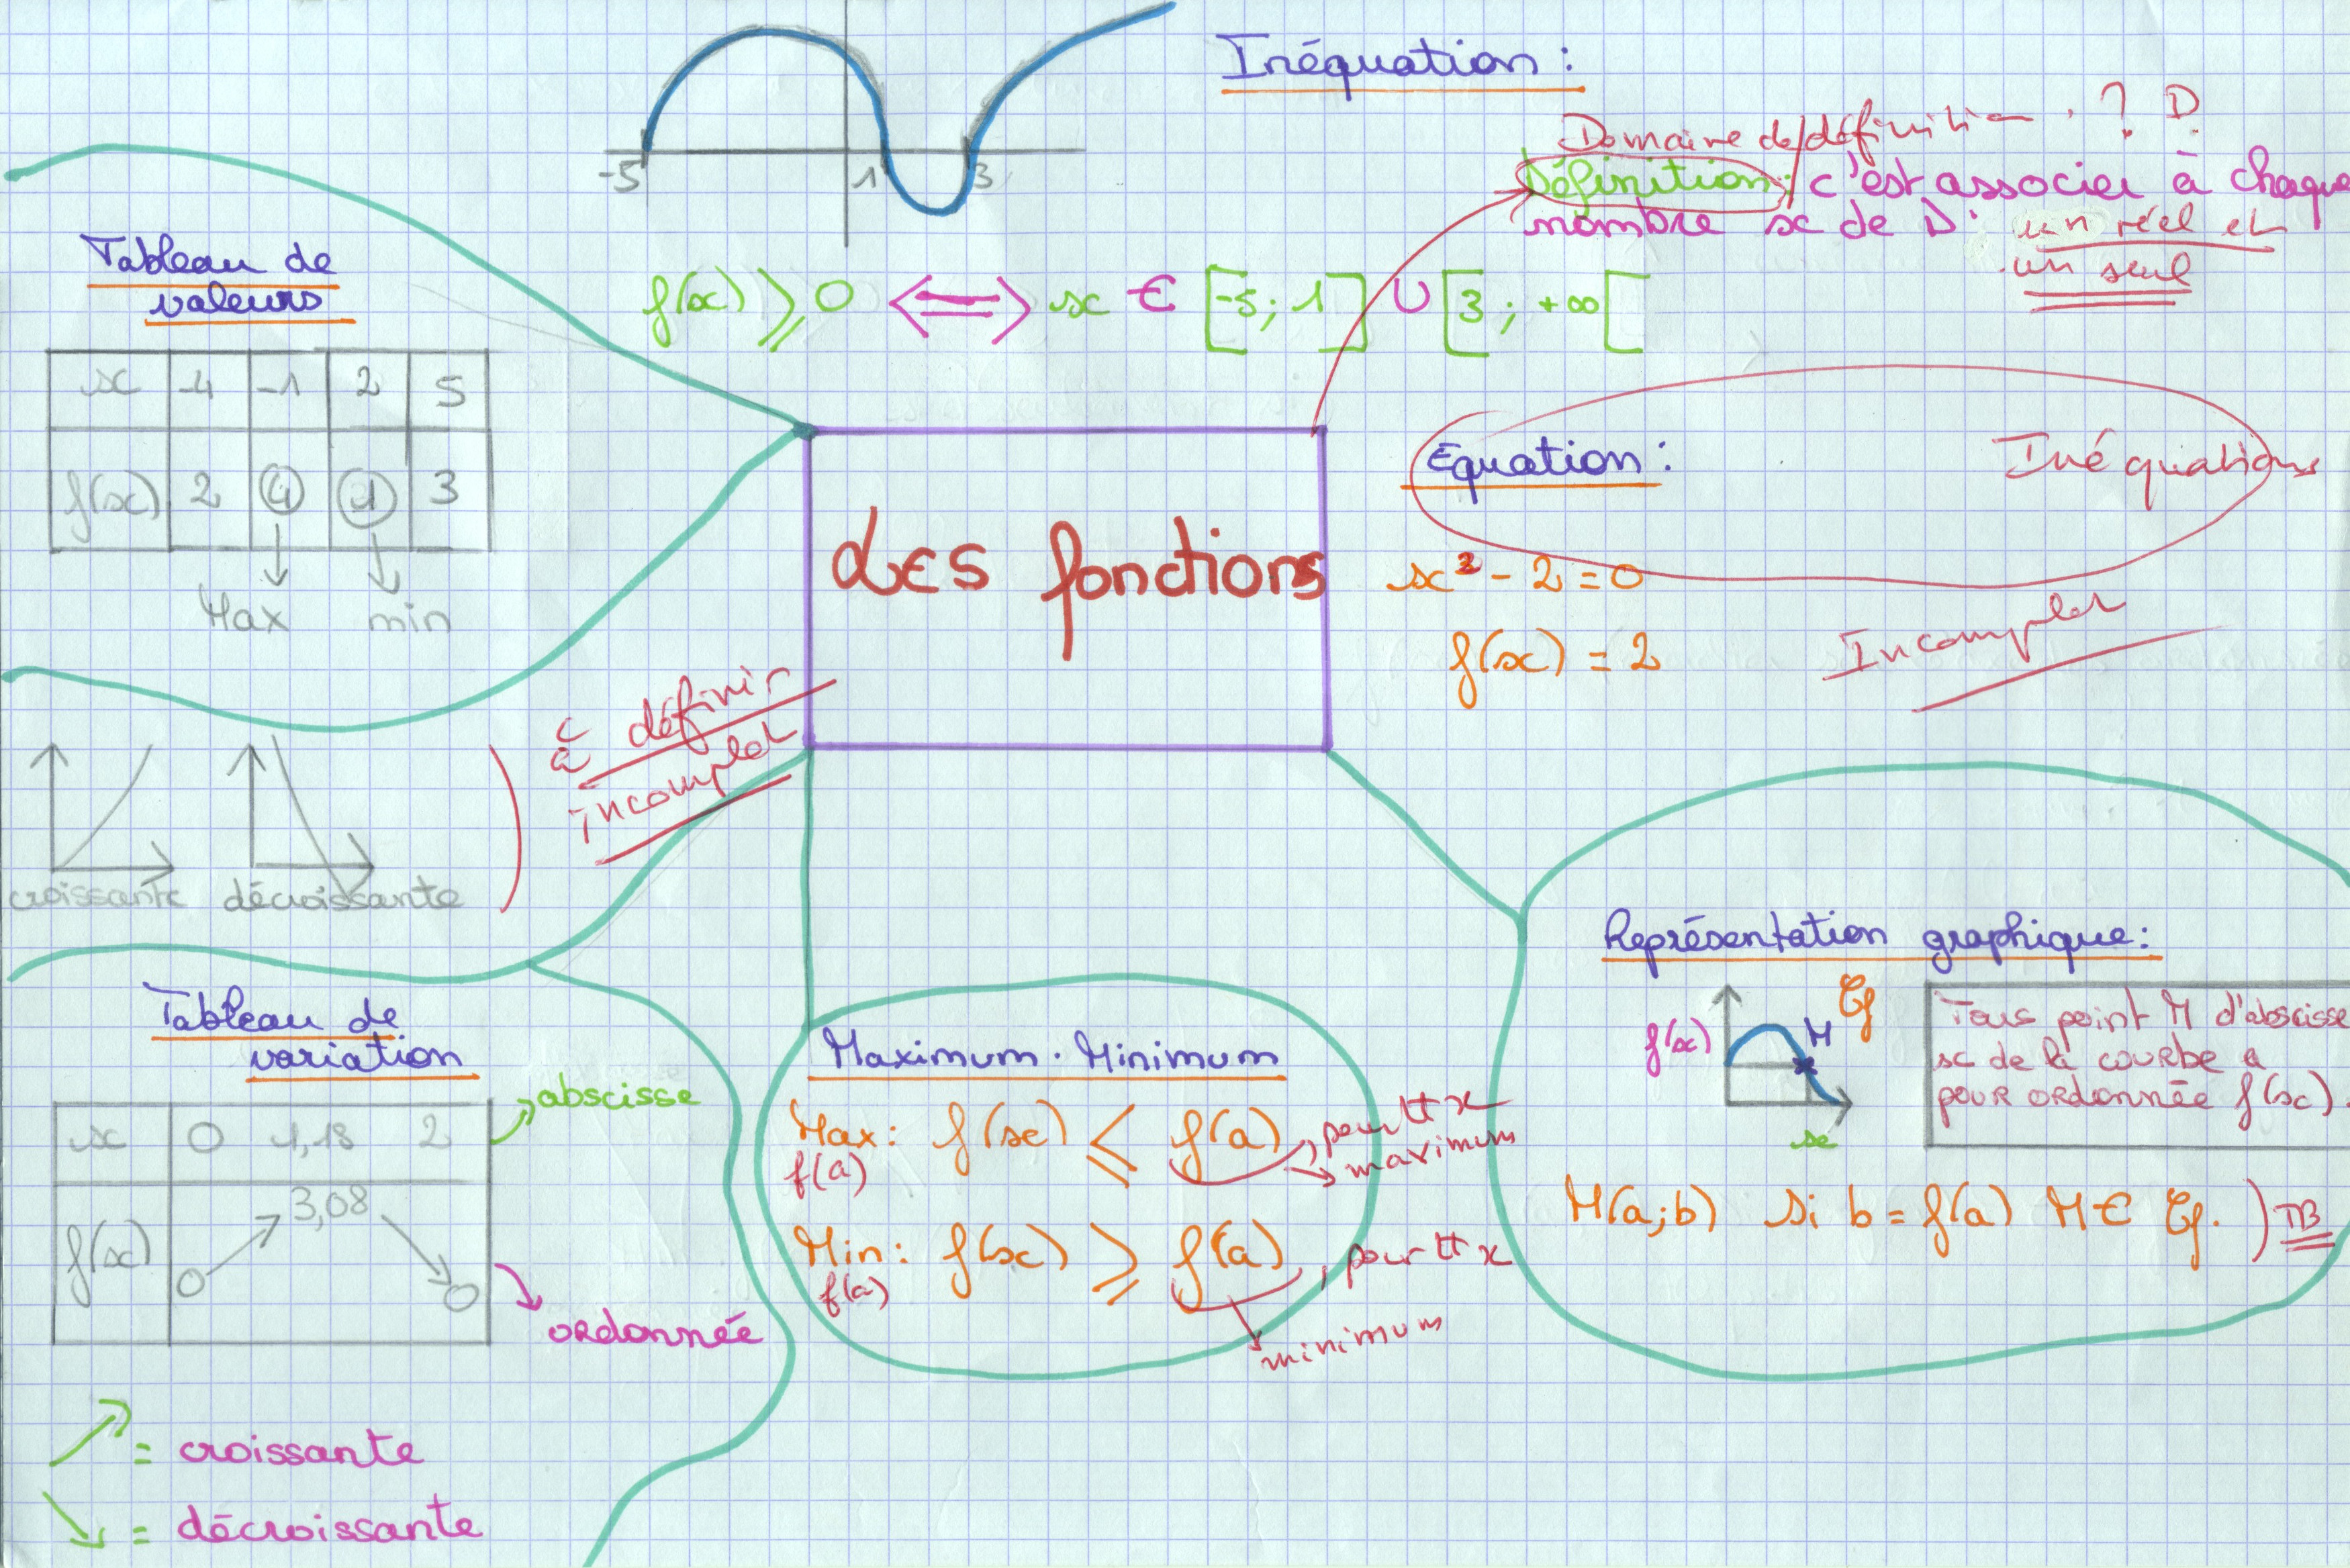 -5 1 3
Inéquation :
f(x) ⩾ 0 ⟺ x ∈ [-5 ; 1] ∪ [3 ; +∞[
Domaine de définition : ? D
Définition : c'est associer à chaque
nombre x de D : un réel et
un seul
Tableau de
valeurs
x -4 -1 2 5
f(x) 2 4 1 3
Max min
Les fonctions
Equation :
Inéquations
x² - 2 = 0
f(x) = 2
Incomplet
croissante décroissante
à définir
incomplet
Tableau de
variation
x 0 1,18 2
f(x) 0 3,08 0
abscisse
ordonnée
= croissante
= décroissante
Maximum . Minimum
Max : f(x) ⩽ f(a) , pour tt x
f(a) maximum
Min : f(x) ⩾ f(a) , pour tt x
f(a) minimum
Représentation graphique :
f(x) M Cf
x
Tous point M d'abscisse
x de la courbe a
pour ordonnée f(x).
M(a;b) si b = f(a) M ∈ Cf. TB